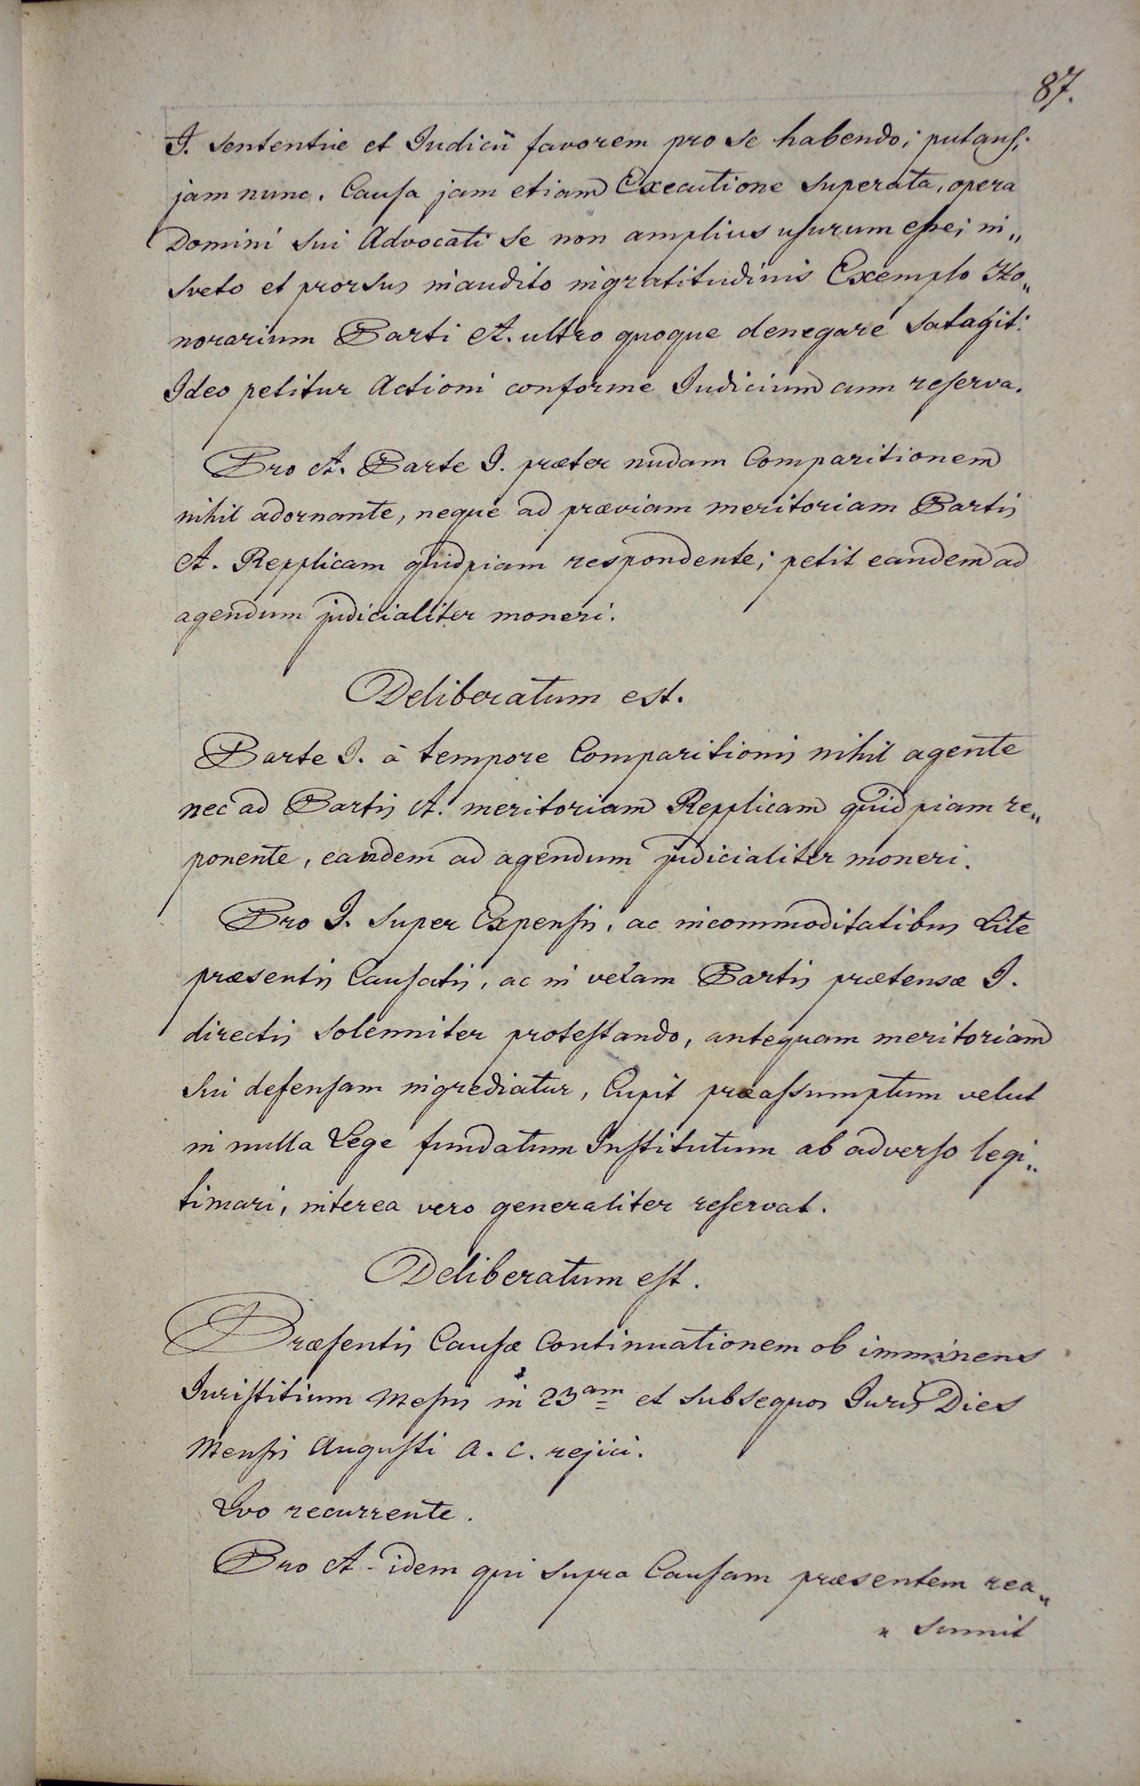 87.
I. sententiæ et Iudicii favorem pro se habendo; putans,
jam nunc, Causa jam etiam Executione superata, opera
Domini sui Advocati se non amplius usurum esse; in„
sveto et prorsus inaudito ingratitudinis Exemplo Ho„
norarium Parti A. ultro quoque denegare satagit:
Ideo petitur Actioni conforme Iudicium cum reserva.
Pro A. Parte I. præter nudam Comparitionem
nihil adornante, neque ad præviam meritoriam Partis
A. Repplicam quidpiam respondente; petit eandem ad
agendum judicialiter moneri.
Deliberatum est.
Parte I. à tempore Comparitionis nihil agente
nec ad Partis A. meritoriam Repplicam quidpiam re„
ponente, eandem ad agendum judicialiter moneri.
Pro I. super Expensis, ac incommoditatibus Lite
præsentis Causatis, ac in vexam Partis prætensæ I.
directis solenniter protestando, antequam meritoriam
sui defensam ingrediatur, Cupit præassumptum velut
in nulla Lege fundatum Institutum ab adverso legi„
timari, interea vero generaliter reservat.
Deliberatum est.
Præsentis Causæ Continuationem ob imminens
Iuristitium Messis in 23am et subsequos Iuris Dies
Mensis Augusti a. c. rejici.
Quo recurrente.
Pro A. idem qui supra Causam præsentem rea„
„ sumit